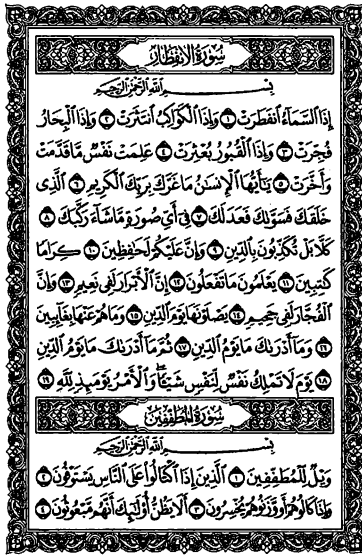 سُورَةُ الانفِطَار
بِسْمِ اللَّهِ الرَّحْمَٰنِ الرَّحِيمِ
إِذَا السَّمَاءُ انفَطَرَتْ ١ وَإِذَا الْكَوَاكِبُ انتَثَرَتْ ٢ وَإِذَا الْبِحَارُ
فُجِّرَتْ ٣ وَإِذَا الْقُبُورُ بُعْثِرَتْ ٤ عَلِمَتْ نَفْسٌ مَّا قَدَّمَتْ
وَأَخَّرَتْ ٥ يَٰأَيُّهَا الْإِنسَٰنُ مَا غَرَّكَ بِرَبِّكَ الْكَرِيمِ ٦ الَّذِي
خَلَقَكَ فَسَوَّىٰكَ فَعَدَلَكَ ٧ فِي أَيِّ صُورَةٍ مَّا شَاءَ رَكَّبَكَ ٨
كَلَّا بَلْ تُكَذِّبُونَ بِالدِّينِ ٩ وَإِنَّ عَلَيْكُمْ لَحَٰفِظِينَ ١٠ كِرَامًا
كَٰتِبِينَ ١١ يَعْلَمُونَ مَا تَفْعَلُونَ ١٢ إِنَّ الْأَبْرَارَ لَفِي نَعِيمٍ ١٣ وَإِنَّ
الْفُجَّارَ لَفِي جَحِيمٍ ١٤ يَصْلَوْنَهَا يَوْمَ الدِّينِ ١٥ وَمَا هُمْ عَنْهَا بِغَائِبِينَ
١٦ وَمَا أَدْرَىٰكَ مَا يَوْمُ الدِّينِ ١٧ ثُمَّ مَا أَدْرَىٰكَ مَا يَوْمُ الدِّينِ
١٨ يَوْمَ لَا تَمْلِكُ نَفْسٌ لِّنَفْسٍ شَيْئًا وَالْأَمْرُ يَوْمَئِذٍ لِّلَّهِ ١٩
سُورَةُ المُطَفِّفِينَ
بِسْمِ اللَّهِ الرَّحْمَٰنِ الرَّحِيمِ
وَيْلٌ لِّلْمُطَفِّفِينَ ١ الَّذِينَ إِذَا اكْتَالُوا عَلَى النَّاسِ يَسْتَوْفُونَ ٢
وَإِذَا كَالُوهُمْ أَو وَّزَنُوهُمْ يُخْسِرُونَ ٣ أَلَا يَظُنُّ أُولَٰئِكَ أَنَّهُم مَّبْعُوثُونَ ٤